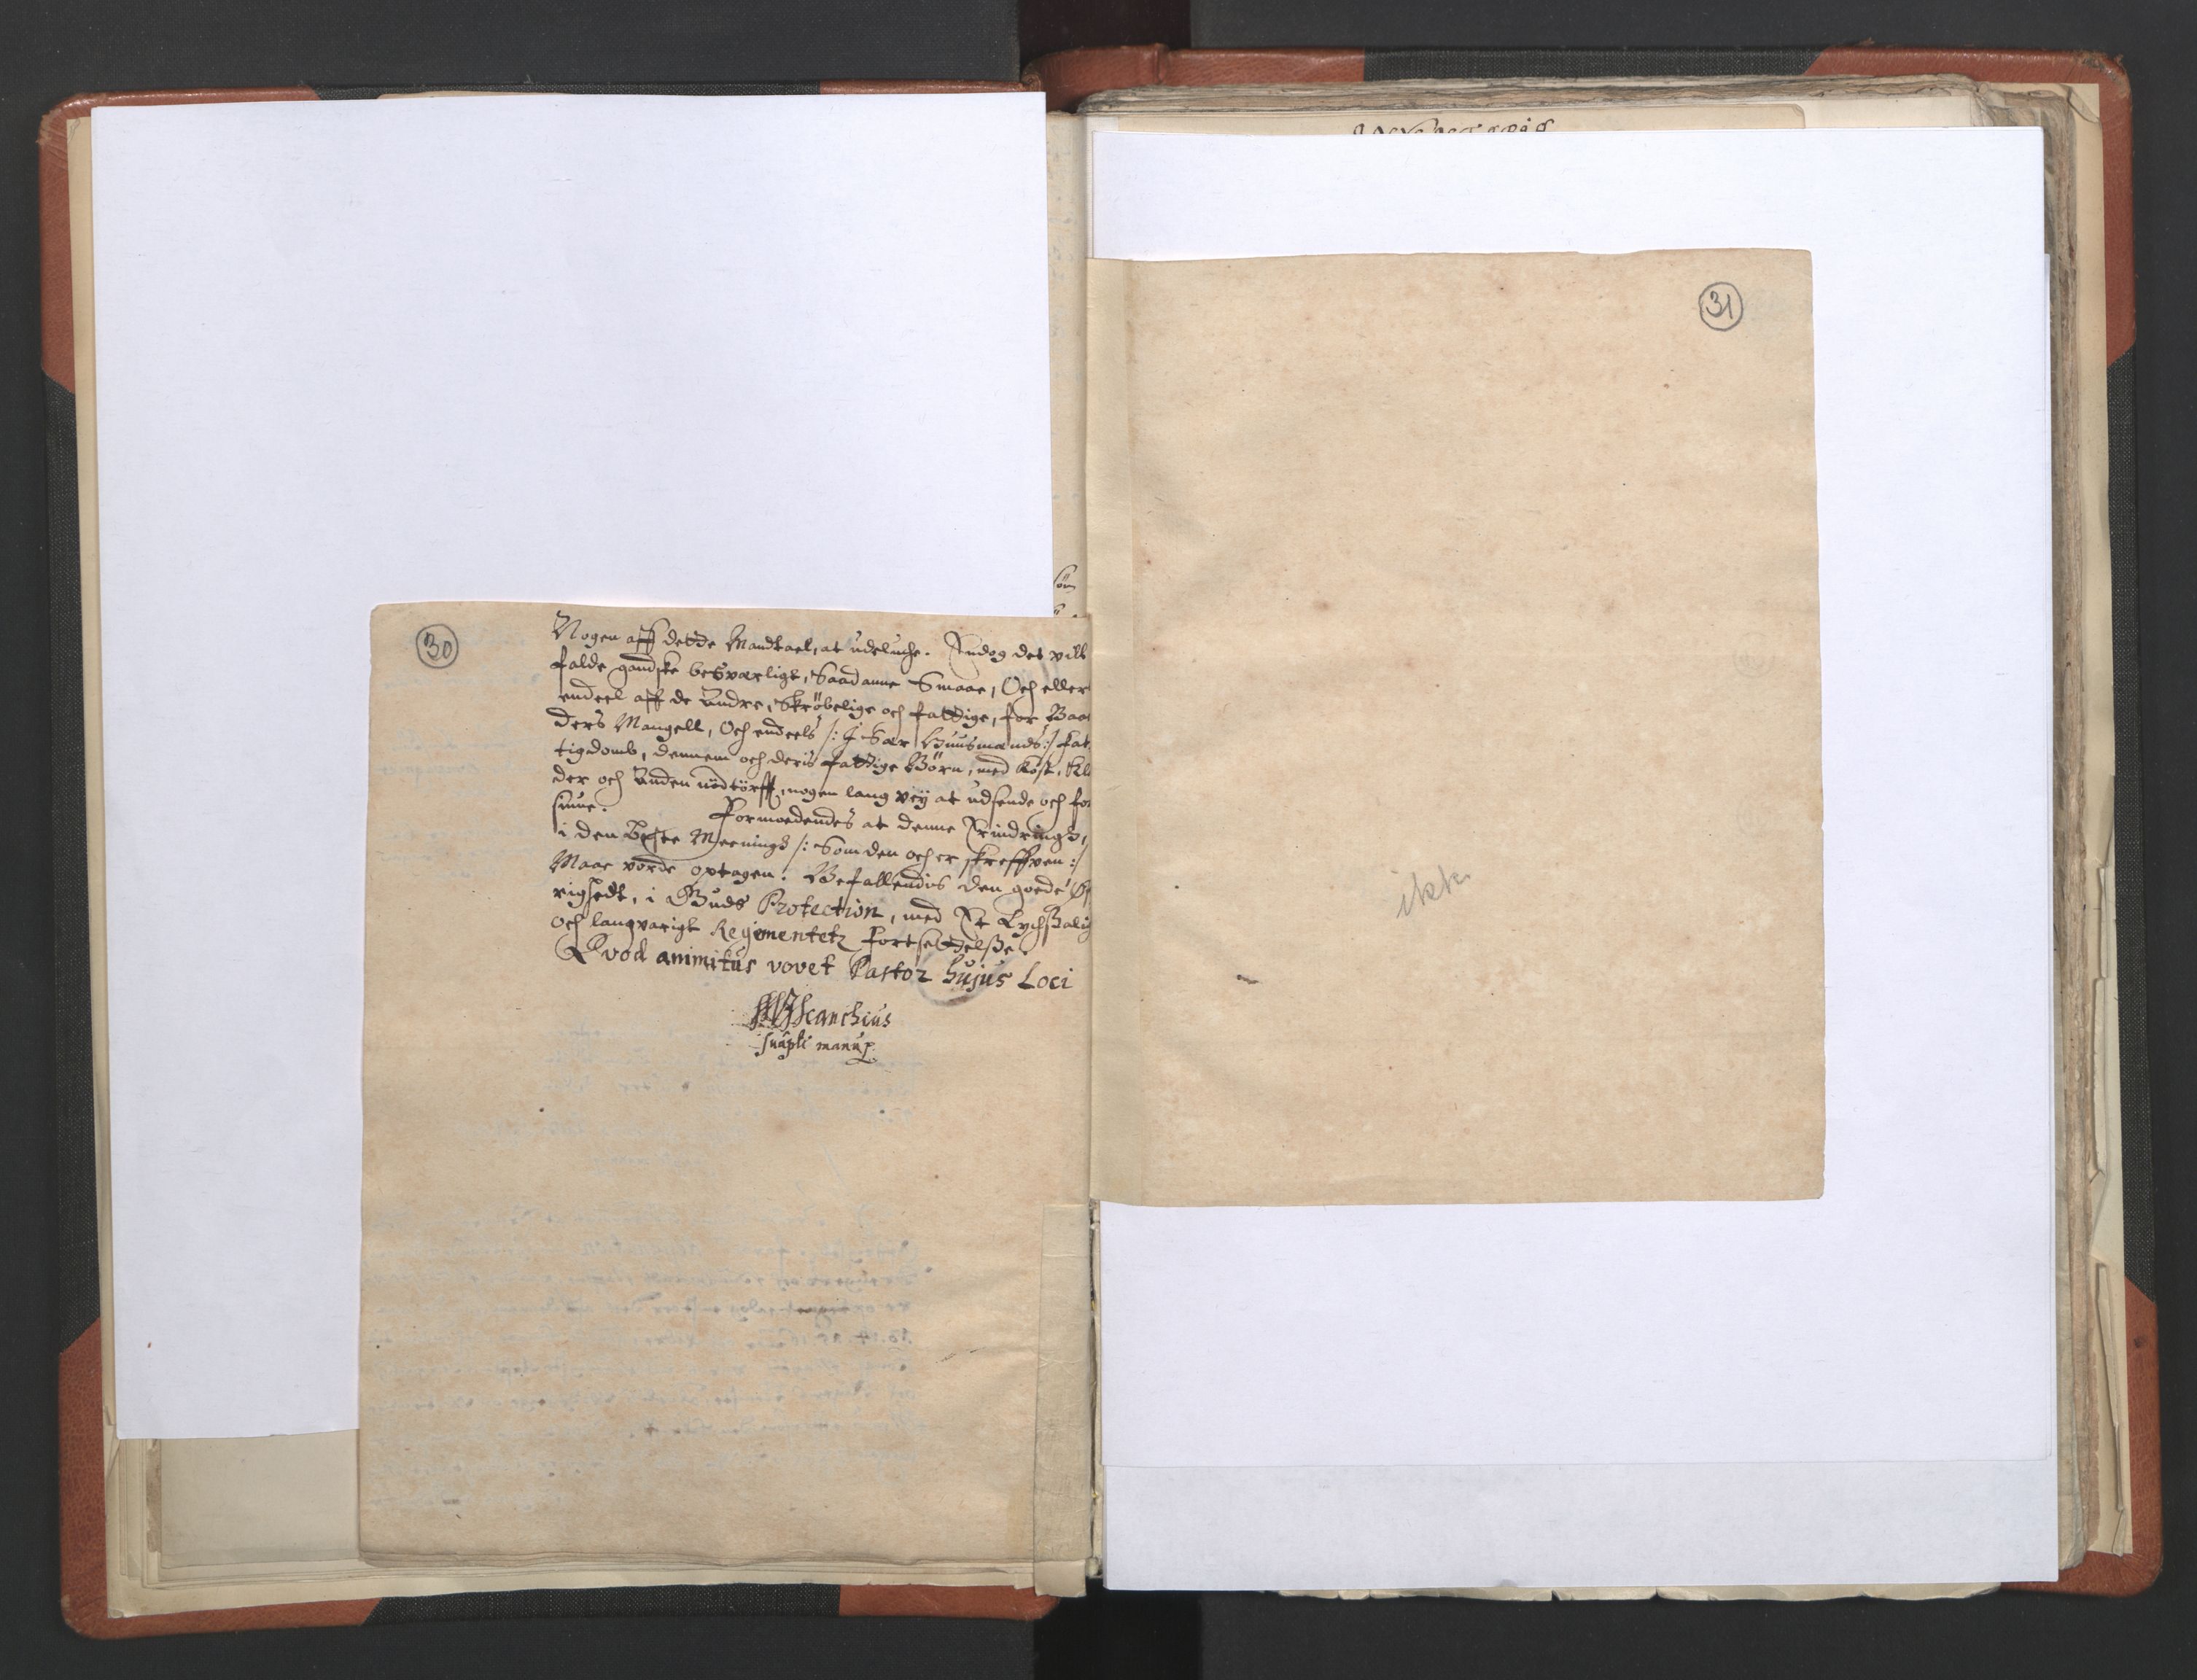 30
Nogen aff dette Mandtael, at udeluche. Endog det vill
falde gandske besværligt, Saadanne Smaae, Och eller
endeel aff de Andre, Skrøbelige och fattige, for
ders Mangell, Och endeels /: J Sær Huusmænds :/ Fat
tigdomb, dennem och deris fattige Børn, med Kost, Klæ
der och Anden nødtörfft, nogen lang veÿ at udsende och for
siune.
Formoedendes at denne Erindring,
i den beste Meening /: Som den och er skreffven :/
Maae vorde optagen. Befallendis den goede Øf
righedt, i Guds Protection, med Et Lychsalig
och langvarigt Regimentetz Fortsettelsse
Qvod animitus vovet Pastor hujus Loci
suapti manup.
31
ikke